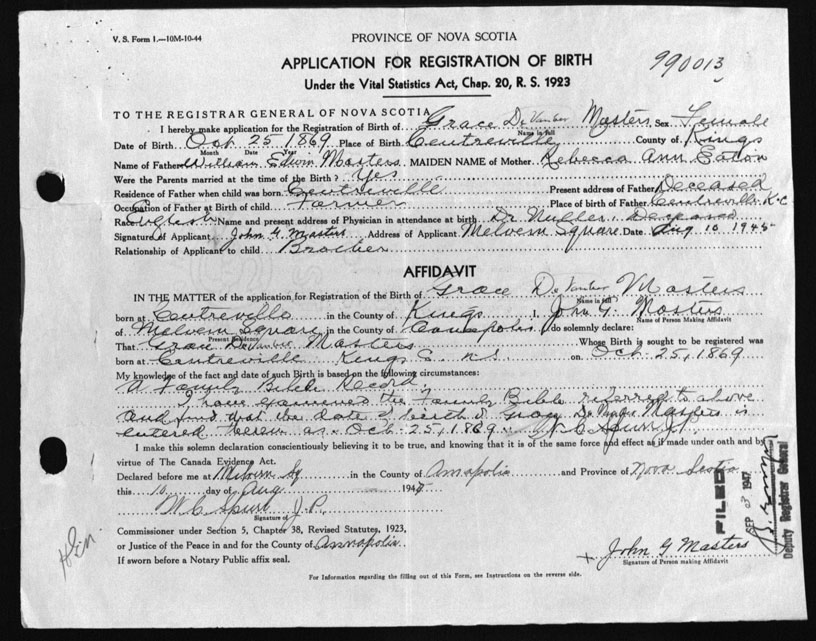 V. S. Form 1.—10M-10-44
PROVINCE OF NOVA SCOTIA
APPLICATION FOR REGISTRATION OF BIRTH
990013
Under the Vital Statistics Act, Chap. 20, R. S. 1923
TO THE REGISTRAR GENERAL OF NOVA SCOTIA
I hereby make application for the Registration of Birth of Grace DeVamber Masters Sex Female
Name in full
Date of Birth Oct 25 1869 Place of Birth Centreville County of Kings
Month Date Year
Name of Father William Edwin Masters MAIDEN NAME of Mother Rebecca Ann Eaton
Were the Parents married at the time of the Birth? Yes
Residence of Father when child was born Centreville Present address of Father Deceased
Occupation of Father at Birth of child Farmer Place of birth of Father Centreville K-C
Race English Name and present address of Physician in attendance at birth Dr Deceased
Signature of Applicant John G. Masters Address of Applicant Melvern Square Date Aug 10 1945
Relationship of Applicant to child Brother
AFFIDAVIT
IN THE MATTER of the application for Registration of the Birth of Grace DeVamber Masters
Name in full
born at Centreville in the County of Kings I, John G. Masters
Name of Person Making Affidavit
of Melvern Square in the County of Annapolis do solemnly declare:
Present Residence
That Grace DeVamber Masters Whose Birth is sought to be registered was
born at Centreville Kings C. N.S. on Oct 25, 1869
My knowledge of the fact and date of such Birth is based on the following circumstances:
A Family Bible Record
I have examined the Family Bible referred to above
and find that the date of birth of Grace DeVamber Masters is
entered therein as Oct 25, 1869 W. C. Spurr J.P.
I make this solemn declaration conscientiously believing it to be true, and knowing that it is of the same force and effect as if made under oath and by
virtue of The Canada Evidence Act.
Declared before me at Melvern Sq in the County of Annapolis and Province of Nova Scotia
this 10 day of Aug 1945
W. C. Spurr J.P.
Signature of
Commissioner under Section 5, Chapter 38, Revised Statutes, 1923,
or Justice of the Peace in and for the County of Annapolis
If sworn before a Notary Public affix seal.
+ John G Masters
Signature of Person making Affidavit
For Information regarding the filling out of this Form, see Instructions on the reverse side.
FILED
SEP 3 1947
Deputy Registrar General